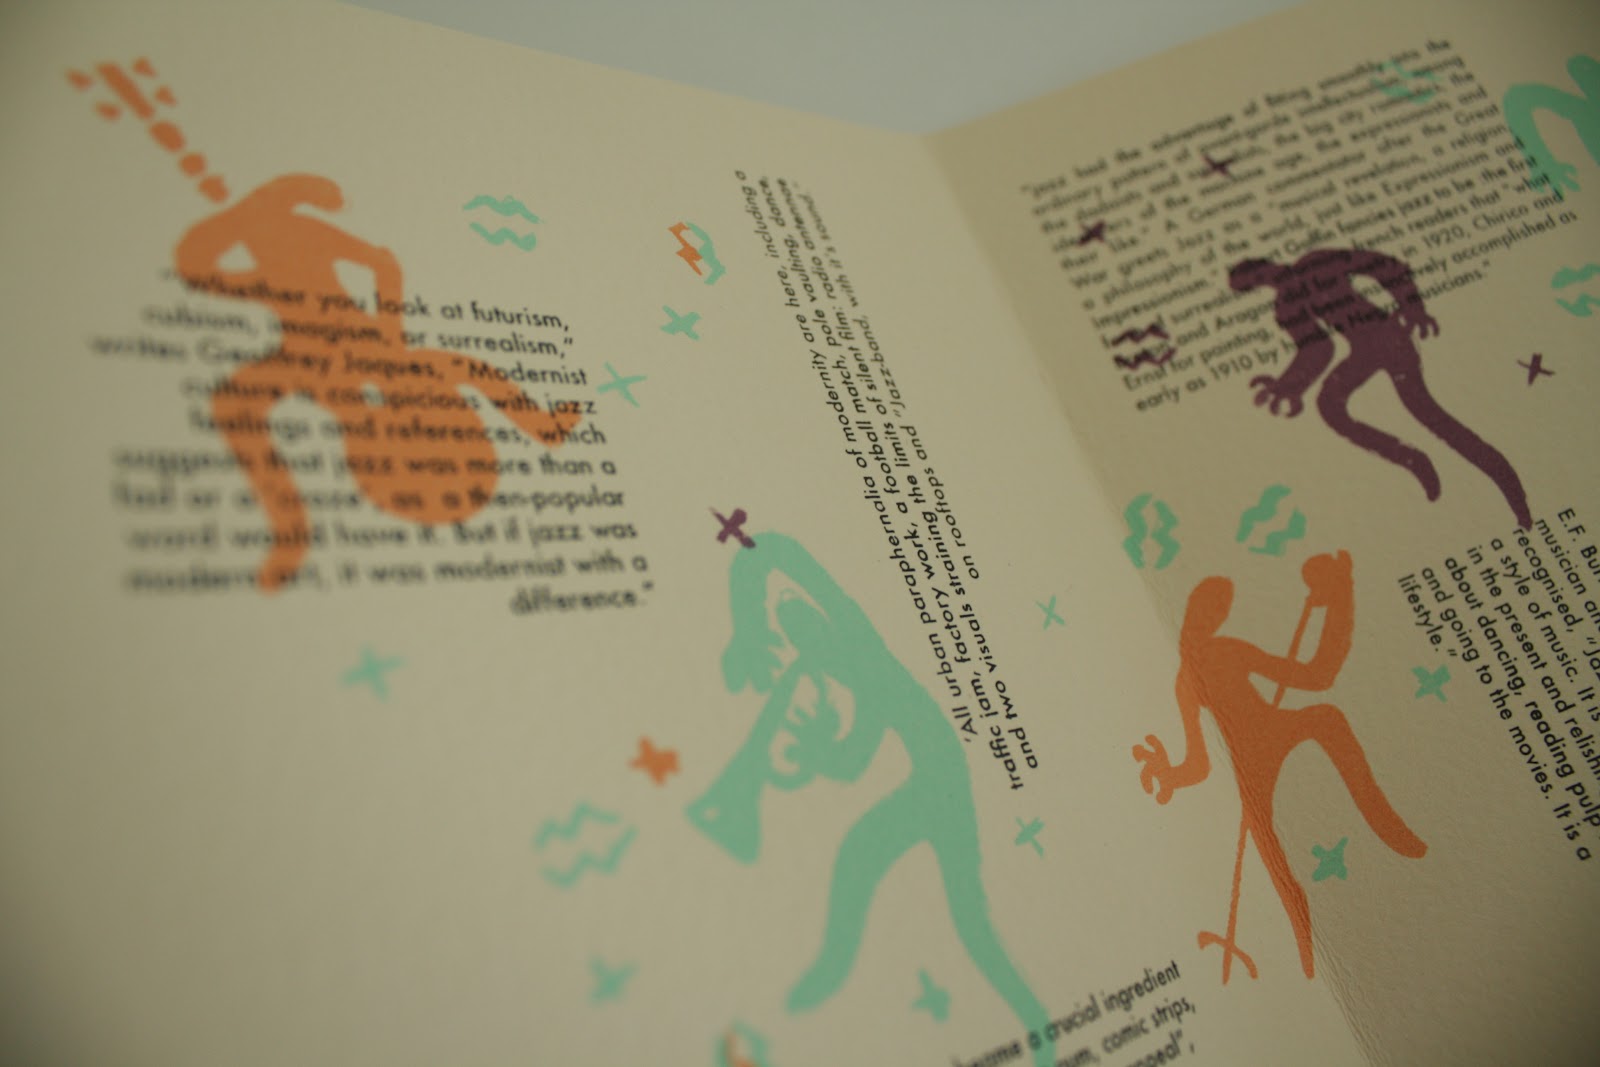 "Whether you look at futurism,
cubism, imagism, or surrealism,"
writes Geoffrey Jaques, "Modernist
culture is conspicious with jazz
feelings and references, which
suggests that jazz was more than a
fad or a 'craze', as a then-popular
word would have it. But if jazz was
modern art, it was modernist with a
difference."
'All urban paraphernalia of modernity are here, including a
traffic jam, factory work, a football match, pole vaulting, dance,
and two visuals straining the limits of silent film: radio antennae
on rooftops and "Jazz-band, with it's sound".
"Jazz had the advantage of fitting smoothly into the
ordinary pattern of avant-garde intellectualism, among
the dadaists and surrealists, the big city romantics, the
idealisers of the machine age, the expressionists and
their like." A German commentator after the Great
War greets Jazz as a "musical revelation, a religion,
a philosophy of the world, just like Expressionism and
Impressionism." Goffin fancies jazz to be the first
surrealist French readers that "what
and Aragon did for in 1920, Chirico and
Ernst for painting, had been instinctively accomplished as
early as 1910 by humble Negro musicians."
E.F.
musician
recognised,
a style of music. It is
in the present and
about dancing, reading pulp
and going to the movies. It is a
lifestyle."
a crucial ingredient
comic strips,